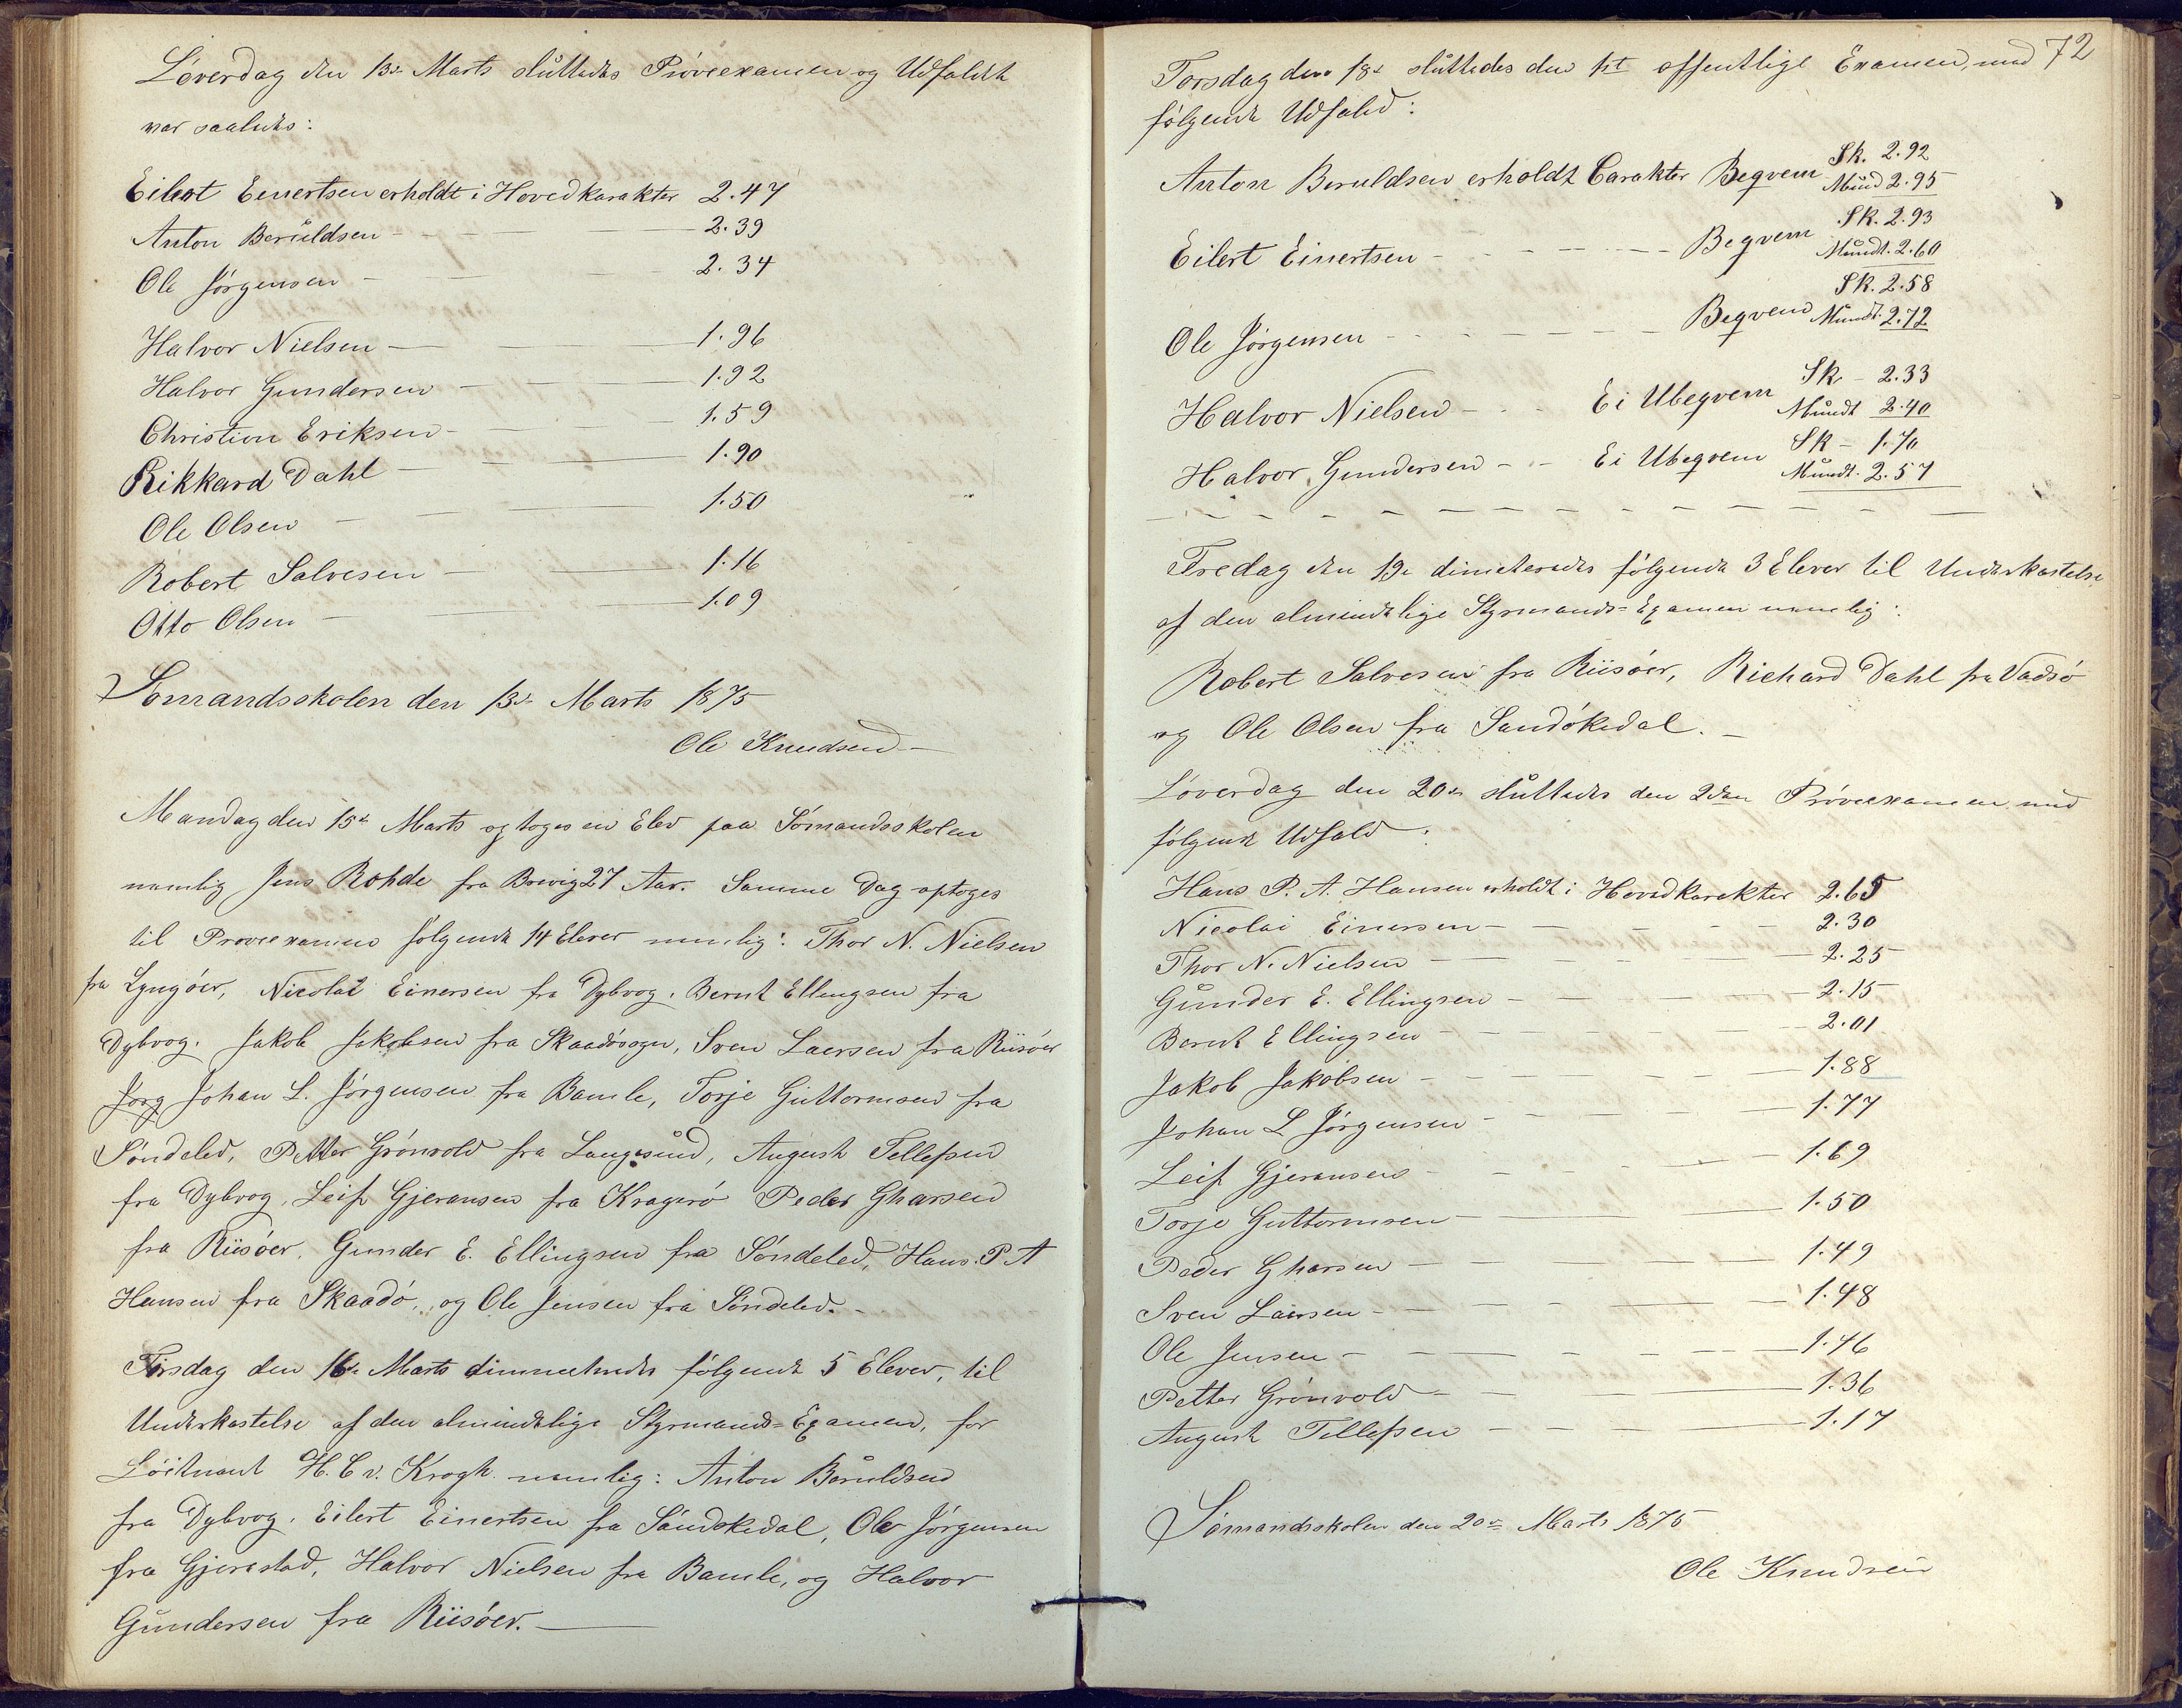 Löverdag den 13de Marts sluttedes Pröveexamen og Udfaldt
var saaledes:
Eilert Einertsen erholdt i Hovedkarakter 2.47
Anton Beruldsen - — — 2.39
Ole Jörgensen - — — 2.34
Halvor Nielsen — — 1.96
Halvor Gundersen - — — 1.92
Christian Eriksen - — — 1.59
Rikkard Dahl — — 1.90
Ole Olsen — — — 1.50
Robert Salvesen — — 1.16
Otto Olsen — — 1.09
Sömandsskolen den 13de Marts 1875
Ole Knudsen —
Mandag den 15de Marts optoges en Elev paa Sömandsskolen
nemlig Jens Rohde fra Brevig 27 Aar. Samme Dag optoges
til Pröveexamen følgende 14 Elever nemlig: Thor N. Nielsen
fra Lyngöer, Nicolai Einersen fra Dybvog. Bernt Ellingsen fra
Dybvog. Jakob Jakobsen fra Skaadösogn, Sven Laersen fra Riisöer
Jörg Johan L. Jörgensen fra Bamle, Torje Guttormsen fra
Söndeled, Petter Grönvold fra Langesund, August Tellefsen
fra Dybvog, Leif Gjeransen fra Kragerö Peder Gharsen
fra Riisöer, Gunder E. Ellingsen fra Söndeled, Hans P. A
Hansen fra Skaadö, og Ole Jensen fra Söndeled. -
Tirsdag den 16de Marts dimmeteredes følgende 5 Elever, til
Underkastelse af den almindelige Styrmands=Examen, for
Löitnant H. C v. Krogh nemlig: Anton Beruldsen
fra Dybvog. Eilert Einertsen fra Sandökedal, Ole Jörgensen
fra Gjerestad, Halvor Nielsen fra Bamle, og Halvor
Gundersen fra Riisöer. —
72
Torsdag den 18de sluttedes den 1st offentlige Examen, med
følgende Udfald:
Anton Beruldsen erholdt Carakter Begvem Sk. 2.92
Mund 2.95
Eilert Einertsen - - - - - Begvem Sk. 2.93
Mundt. 2.60
Ole Jörgensen - - - - - Begvem Sk. 2.58
Mundt. 2.72
Halvor Nielsen - - - Ei Ubegvem Sk - 2.33
Mundt 2.40
Halvor Gundersen - - Ei Ubegvem Sk - 1.70
Mundt. 2.57
Fredag den 19de dimeteredes følgende 3 Elever til Underkastelse
af den almindelige Styrmands=Examen nemlig:
Robert Salvesen fra Riisöer, Richard Dahl fra Vadsö
og Ole Olsen fra Sandökedal. —
Löverdag den 20de sluttedes den 2den Pröveexamen med
følgende Udfald:
Hans P. A. Hansen erholdt i Hovedkarakter 2.65
Nicolai Einersen - — - - - 2.30
Thor N. Nielsen — - - — 2.25
Gunder E. Ellingsen - — - — 2.15
Bernt Ellingsen - — - - - 2.01
Jakob Jakobsen - — - - — 1.88
Johan L Jörgensen - - - — 1.77
Leif Gjeransen - - - - — 1.69
Torje Guttormsen — — — 1.50
Peder Gharsen — — - — 1.49
Sven Laersen - — - - — 1.48
Ole Jensen - — - - — 1.46
Petter Grönvold - — — 1.36
August Tellefsen - — - — 1.17
Sömandsskolen den 20de Marts 1875
Ole Knudsen